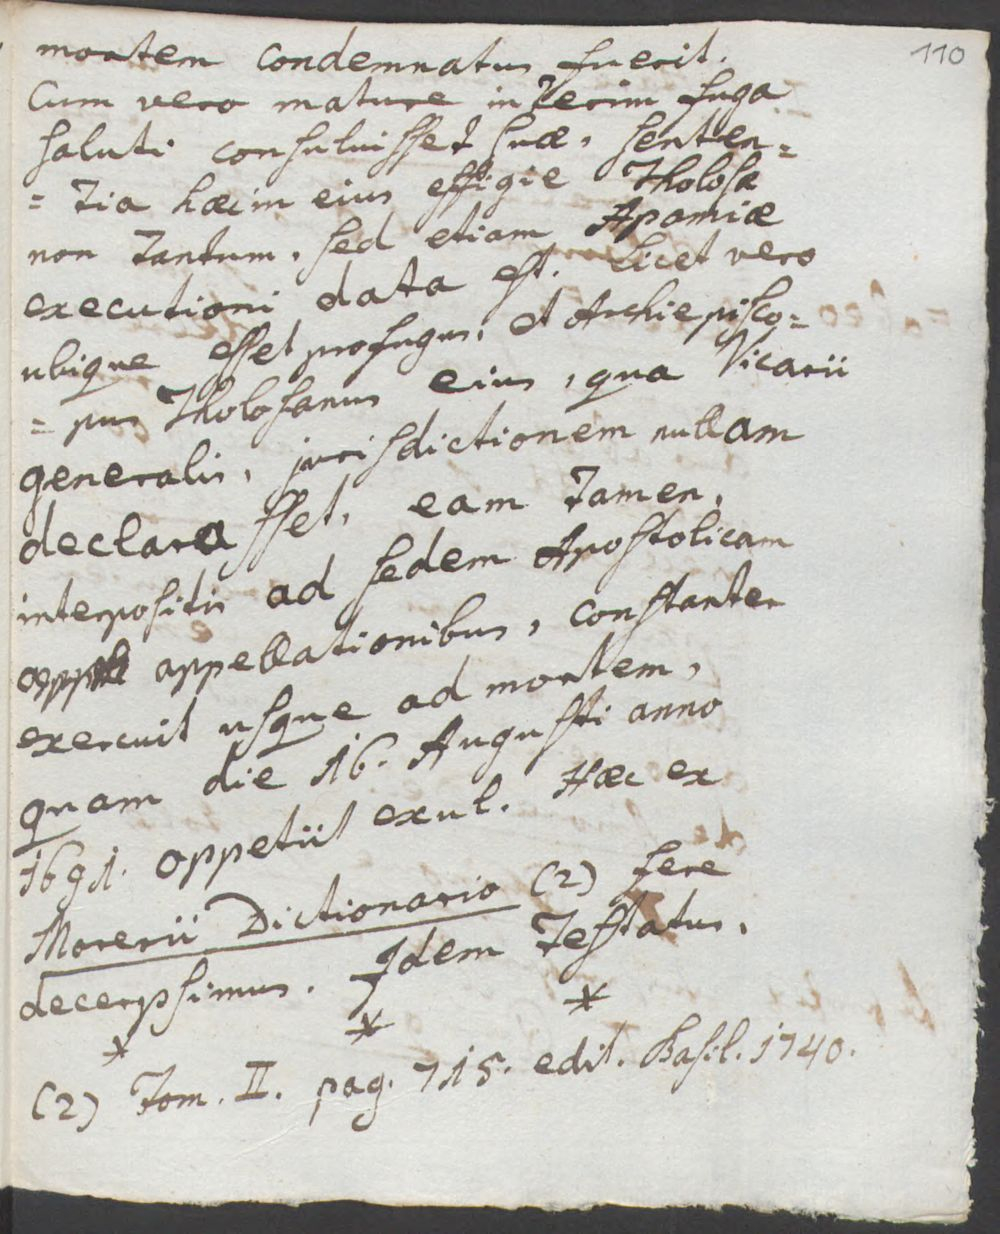 110
mortem condemnatus fuerit.
Cum vero mature interim fuga
saluti consuluisset suæ, senten=
=tia hæc in eius effigie Tholosæ
non tantum, sed etiam Apamiæ
executioni data est. Licet vero
ubique esset profugus, et Archiepisco=
=pus Tholosanus eius, qua Vicarii
generalis, jurisdictionem nullam
declarasset, eam tamen,
interpositis ad sedem Apostolicam
appellationibus, constanter
exercuit usque ad mortem,
quam die 16. Augusti anno
1691. oppetiit exul. Hæc ex
Morerii Dictionario (2) fere
decerpsimus. Idem testatus,
* * *
(2) Tom. II. pag. 715. edit. Basil. 1740.